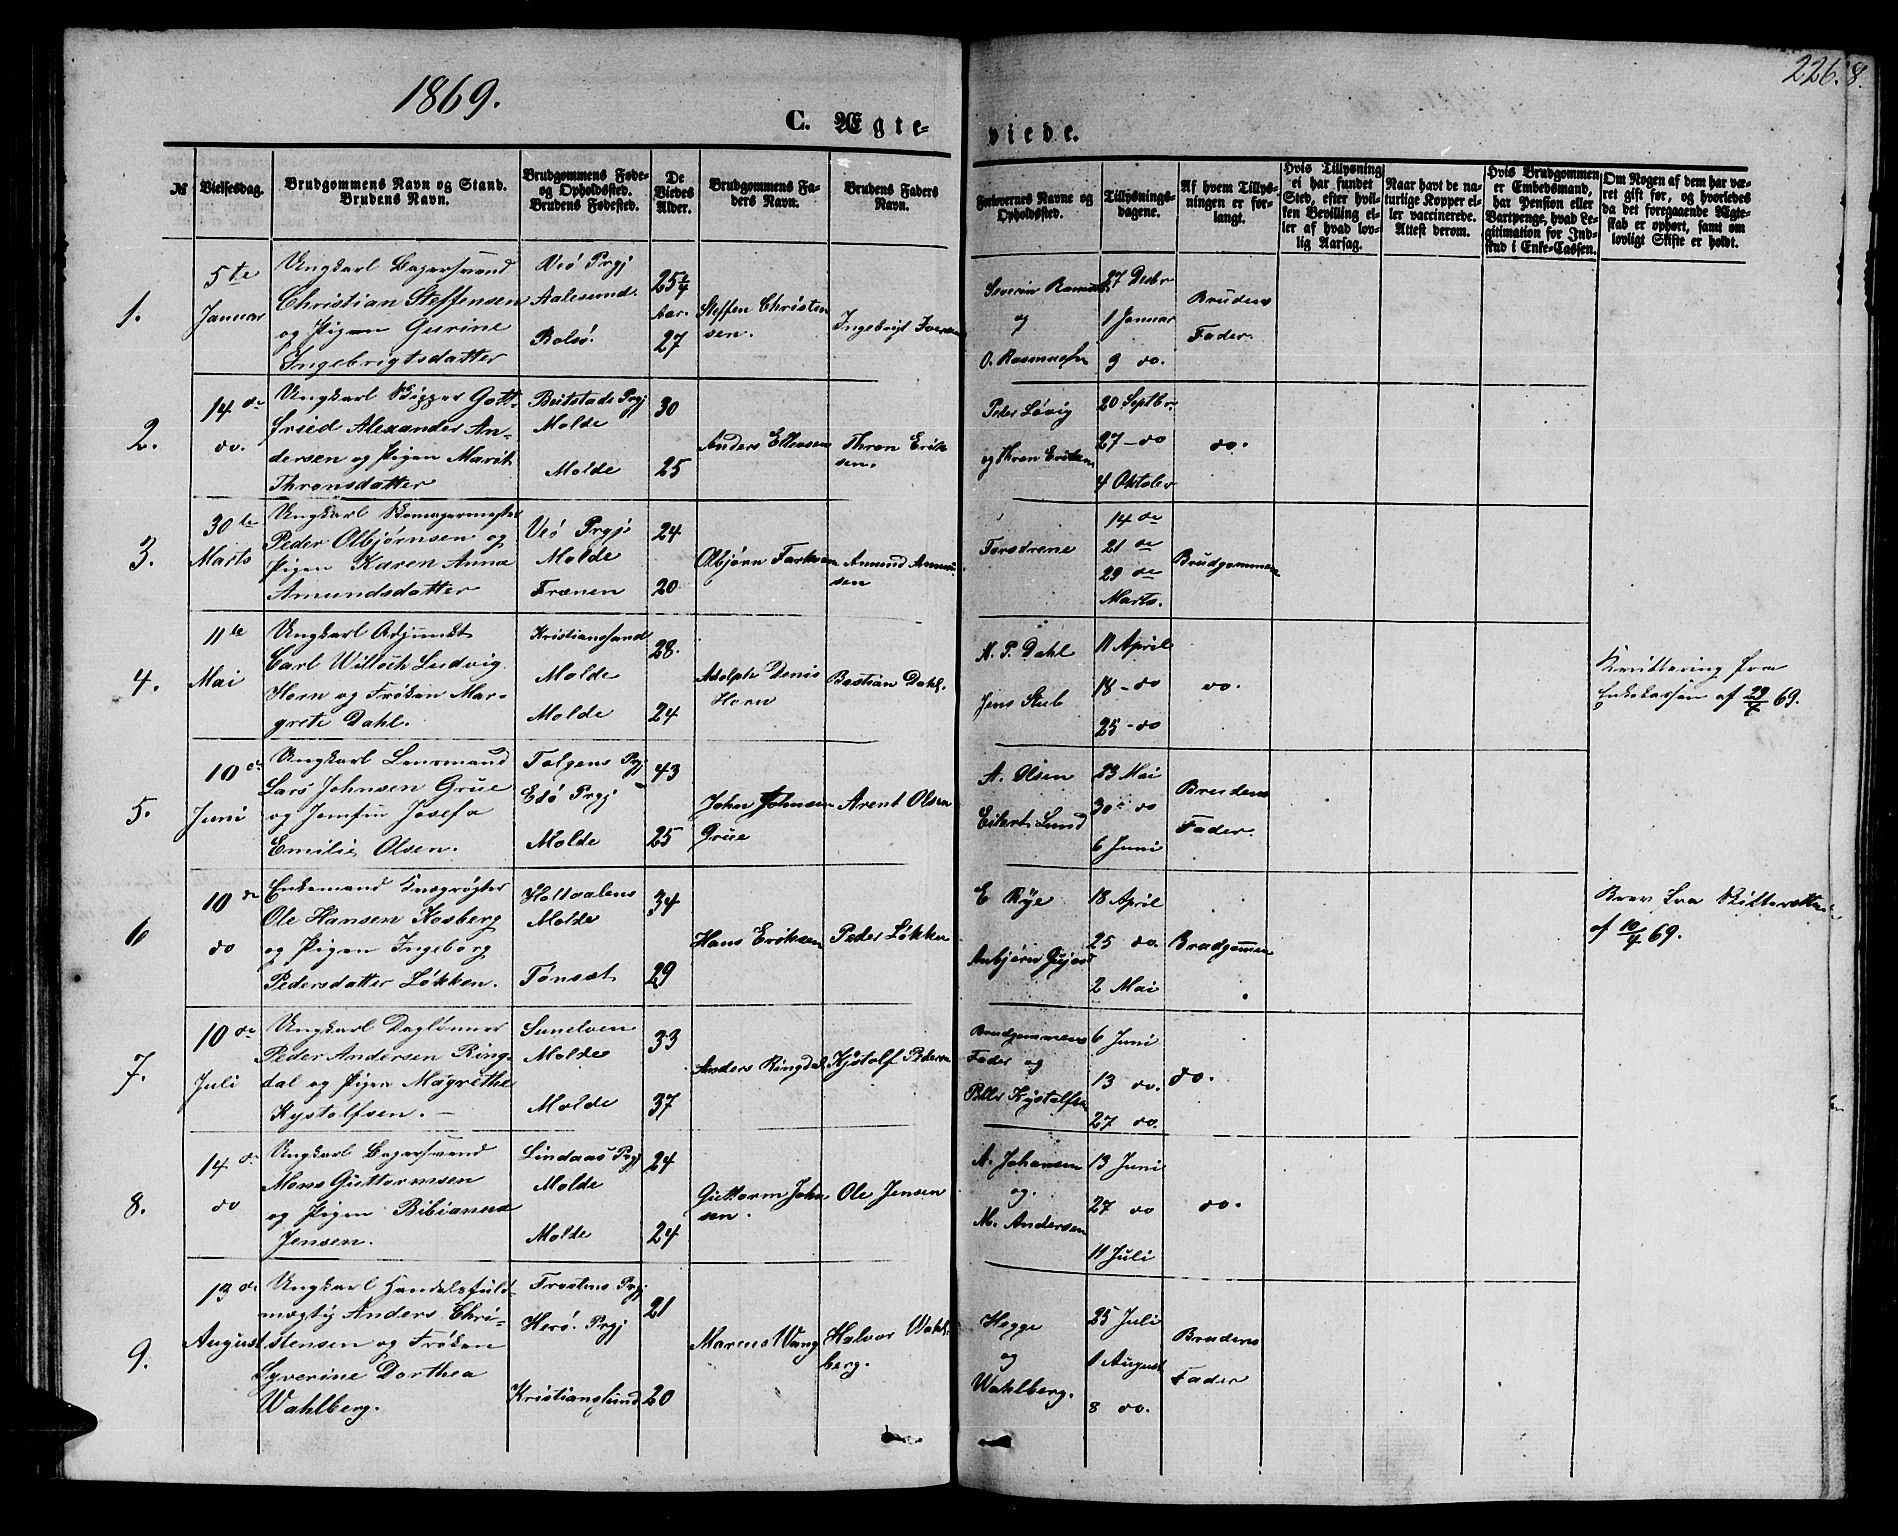 1869.
226. 8.
C. Ægte-
viede.
№
Vielsesdag.
Brudgommens Navn og Stand.
Brudens Navn.
Brudgommens Føde-
og Opholdssted.
Brudens Fødested.
De
Viedes
Alder.
Brudgommens Fa-
ders Navn.
Brudens Faders
Navn.
Forlovernes Navne og
Opholdssted.
Tillysnings-
dagene.
Af hvem Tillys-
ningen er for-
langt.
Hvis Tillysning
ei har fundet
Sted, efter hvil-
ken Bevilling el-
ler af hvad lov-
lig Aarsag.
Naar havt de na-
turlige Kopper el-
ler vaccinerede.
Attest derom.
Hvis Brudgommen
er Embedsmand,
har Pension eller
Vartpenge, hvad Le-
gitimation for Ind-
skud i Enke-Cassen.
Om Nogen af dem har væ-
ret gift før, og hvorledes
da det foregaaende Ægte-
skab er ophørt, samt om
lovligt Skifte er holdt.
1.
5te
Januar
Ungkarl Bagersvend
Christian Steffensen
og Pigen Gurine
Ingebrigtsdatter
Veø Prgj
Aalesund.
Bolsø.
25¼
27
Steffen Christen
sen.
Ingebrigt Iversen
Severin Rasmus.
og
O. Rasmussen
27 Decbr
1 Januar
9 do.
Brudens
Fader.
2.
14 de
do.
Ungkarl Bygger Gott-
fried Alexander An-
dersen og Pigen Marit
Thronsdatter
Beitstads Prgj
Molde
Molde
30
25
Anders Ellevsen
Thron Erik
sen.
Peder Løvig
og Thron Eriksen
20 Septbr.
27 - do
4 Oktober
do.
3.
30 te
Marts
Ungkarl Skomagermester
Peder Olbjørnsen og
Pigen Karen Anna
Amundsdatter
Veø Prgj.
Molde
Frænen
24
20
Olbjørn
Amund Amund
sen
Forsørene
14 de
21 de
29 de
Marts.
Brudgommen
4.
11te
Mai
Ungkarl Adjunkt
Carl Willoch Ludvig
Horn og Frøken Mar-
grete Dahl.
Kristianssand
Molde
Molde
28.
24
Adolph Denis
Horn
Bastian Dahl.
N. P. Dahl
Jens Stub
11 April
18 - do
25 - do
do.
Kvittering fra
Enkekassen af 29/4 69.
5.
10 de
Juni
Ungkarl Lensmand
Lars Johnsen Grue
og Jomfru Josefa
Emilie Olsen.
Tolgens Prgj
Edø Prgj
Molde
43
25
John Johnsen
Grue
Arent Olsen
A. Olsen
Eilert Lund
23 Mai
30 do
6 Juni
Brudens
Fader.
6
10 de
do
Enkemand Kreaturøgter
Ole Hansen Kosberg
og Pigen Ingeborg
Pedersdatter Løkken.
Holtaalens
Molde
Tønset
34
29
Hans Eriksen
Peder Løkken
E Rye
Anbjørn
18 April
25 do.
2 Mai
Brudgommen
Brev fra Skifteretten
af 10/4 69.
7.
10 de
Juli
Ungkarl Daglønner
Peder Andersen Ring-
dal og Pigen Magrethe
Kystolfsen. -
Sunelven
Molde
Molde
33
37
Anders Ringdal
Kystolf Pedersen
Brudgommens
Fader og
Peder Kystolfsen
6 Juni
13 do.
27 do.
do.
8.
14 de
do
Ungkarl Bagersvend
Mons Guttormsen
og Pigen Bibianna
Jensen.
Lindaas Prgj
Molde
Molde
24
24
Guttorm John
sen.
Ole Jensen
A. Johansen
og.
M. Andersen
13 Juni
27 do
11 Juli
do.
9.
13 de
August
Ungkarl Handelsfuld-
mægtig Anders Chri-
stensen og Frøken
Syverine Dorthea
Wahlberg.
Frostens Prgj
Herø. Prgj
Kristianssund
21
20
Marcus Wang
Halvor Wahl-
berg.
Hegge
og
Wahlberg.
25 Juli
1 August
8 do.
Brudens
Fader